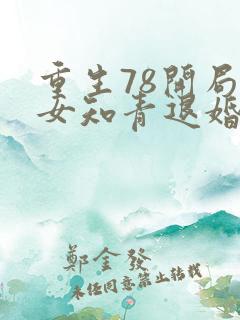 重生78開局
女知青退婚
鄭金發
未经同意禁止转载